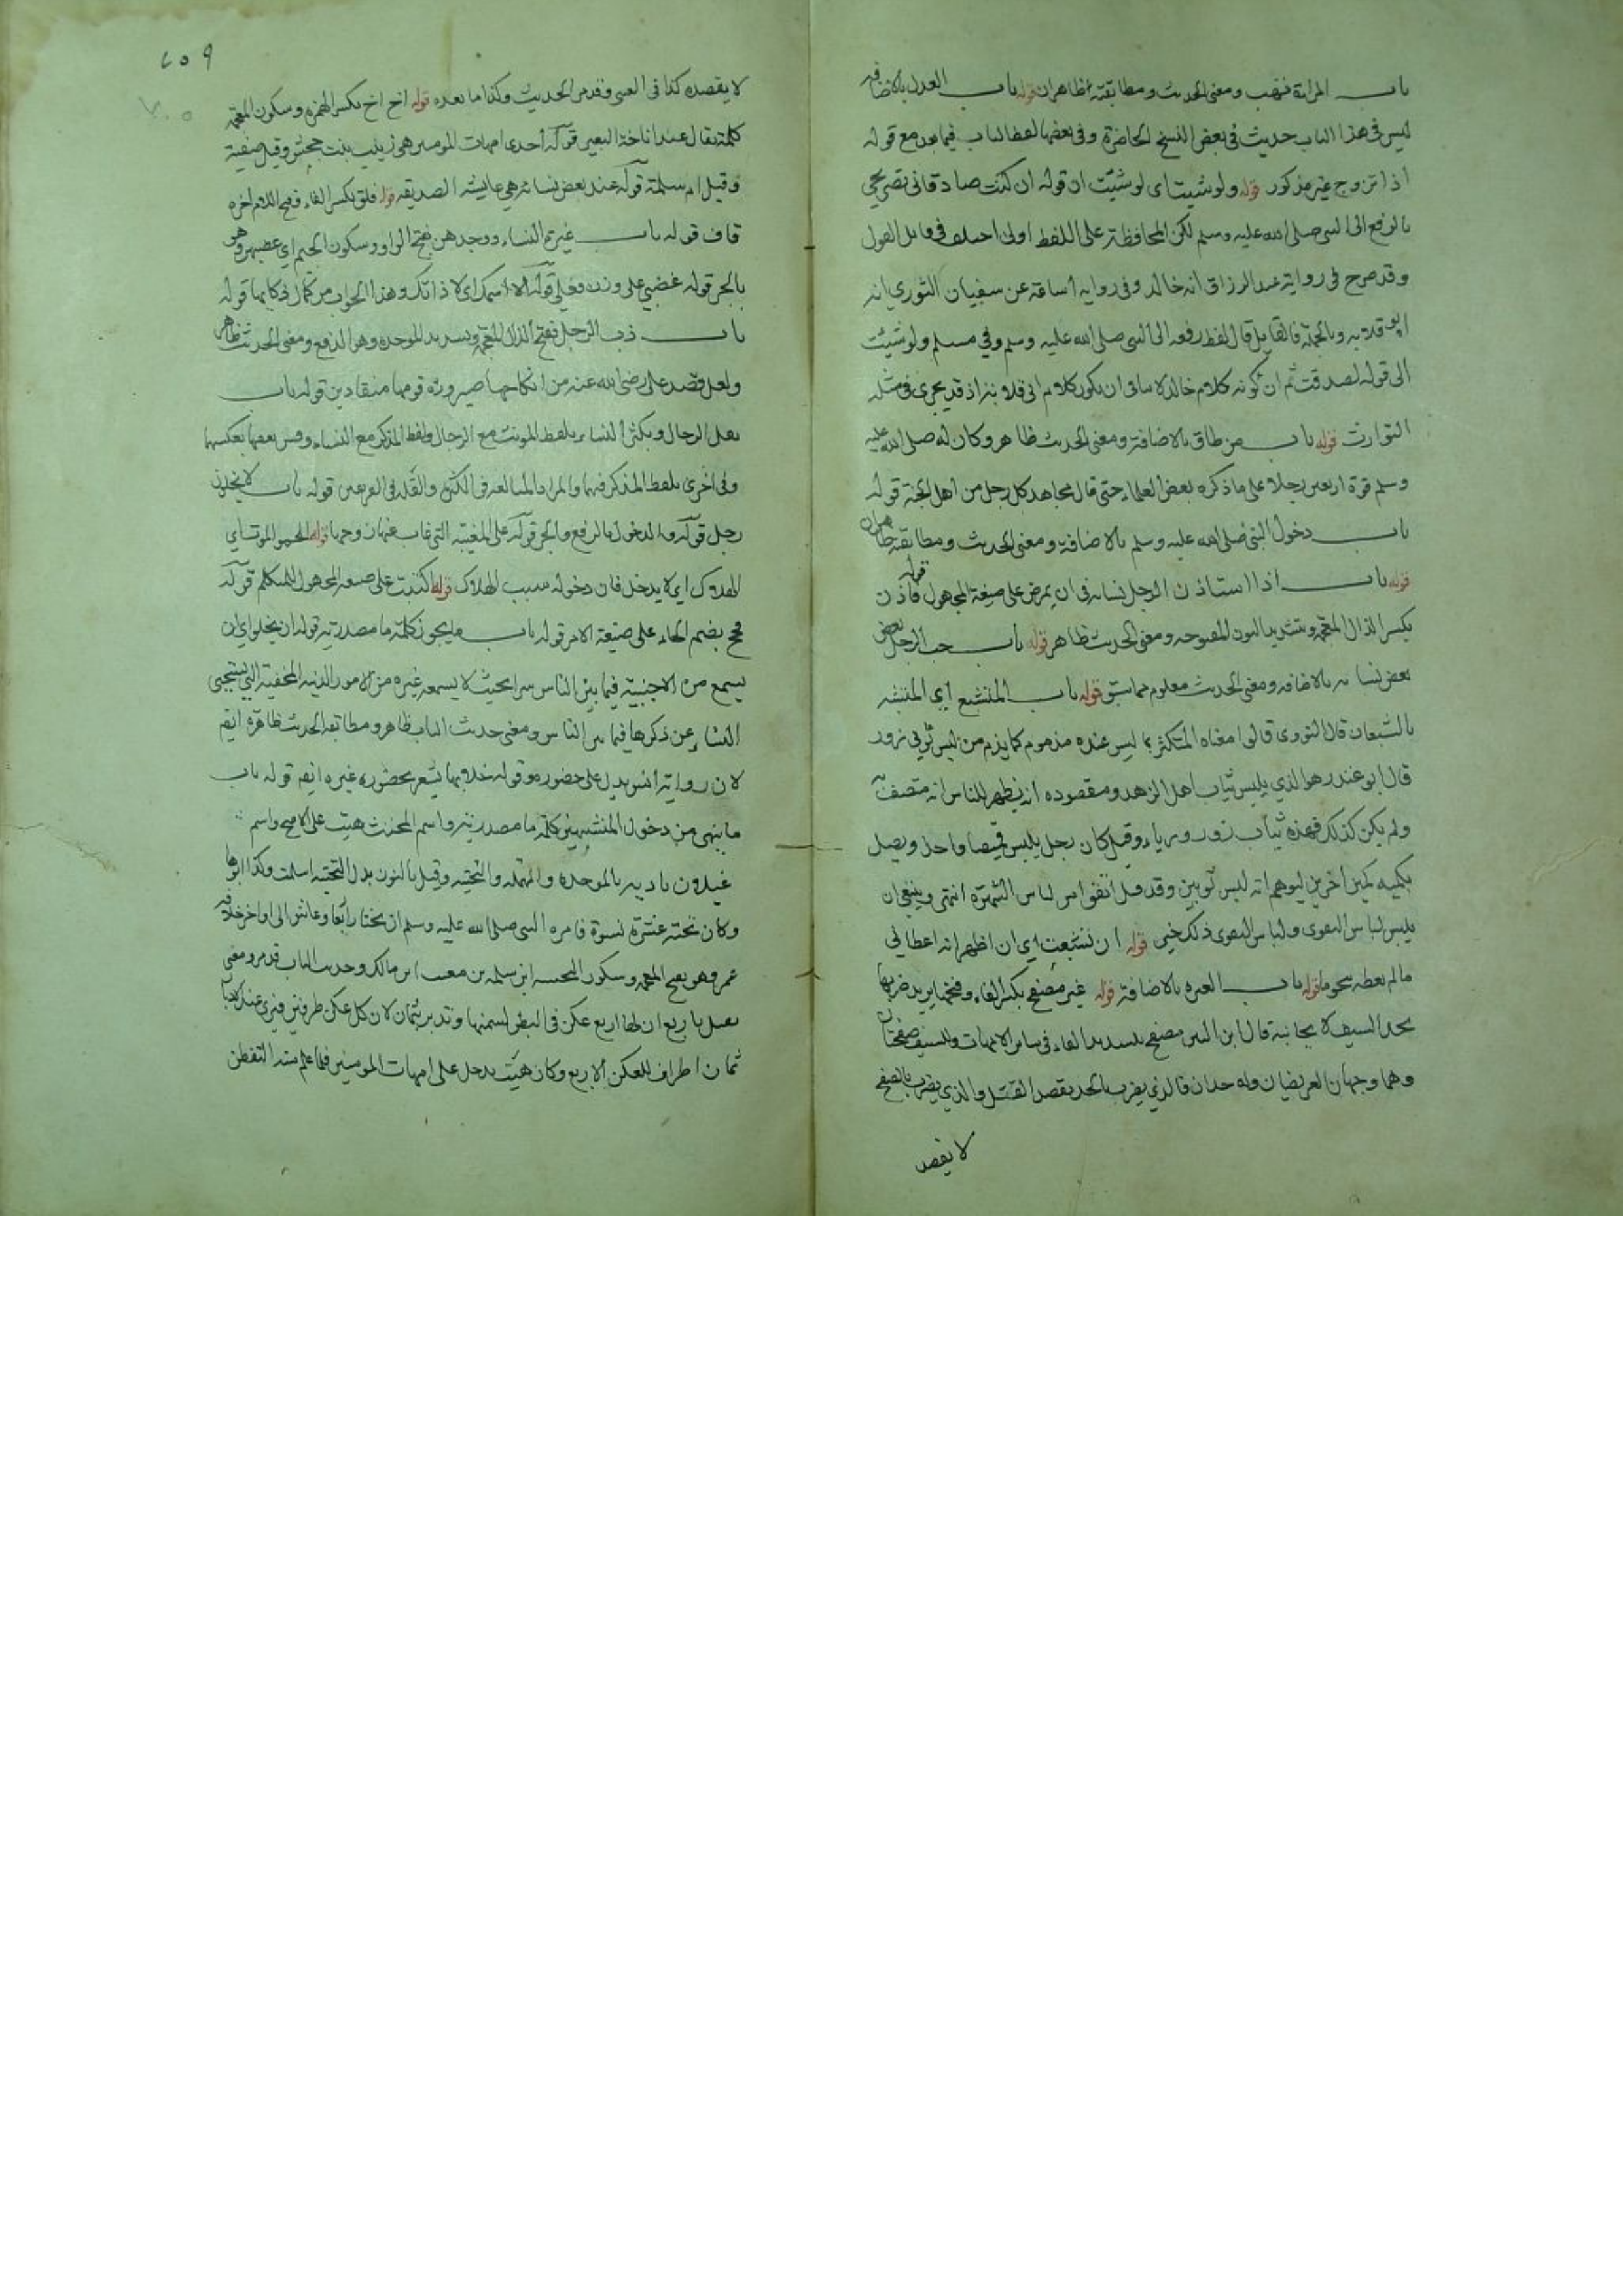 باب المراة تهب ومعنى الحديث ومطابقته ظاهران قوله باب العدل بالاضافه
ليس فى هذا الباب حديث فى بعض النسخ الحاضرة وفى بعضها لفظ الباب فيما بعد مع قوله
اذا تزوج غير مذكور قوله ولو شيت اى لو شئت ان قوله ان كنت صادقا فى تصريحي
بالرفع الى النبى صلى الله عليه وسلم لكن المحافظة على اللفظ اولى اختلف فى قايل القول
وقد صرح فى رواية عبد الرزاق انه خالد وفى رواية عن سفيان الثوري انه
ابو قلابه وبالجملة فالقايل قال لفظ رفعه الى النبى صلى الله عليه وسلم وفي مسلم ولو شئت
الى قوله لصدقت ثم ان كونه كلام خالد لا ينافى ان يكون كلام ابى قلابة اذ قد يجرى فى مثله
التوارث قوله باب من طاف بالاضافة ومعنى الحديث ظاهر وكان له صلى الله عليه
وسلم قوة اربعين رجلا على ما ذكره بعض العلماء حتى قال مجاهد كل رجل من اهل الجنة قوله
باب دخول النبى صلى الله عليه وسلم بالاضافة ومعنى الحديث ومطابقته ظاهران
قوله باب اذا استاذن الرجل نسائه فى ان يمرض على صيغة المجهول قوله فاذن
بكسر الذال المعجمة وتشديد النون المفتوحه ومعنى الحديث ظاهر قوله باب حب الرجل بعض
بعض نسائه بالاضافه ومعنى الحديث معلوم مما سبق قوله باب المتشبع اي المتشبه
بالشبعان قال النووى قالوا معناه المتكثر بما ليس عنده مذموم كما يذم من لبس ثوبي زور
قال ابو عبيد هو الذي يلبس ثياب اهل الزهد ومقصوده ان يظهر للناس انه متصف
ولم يكن كذلك فهذه ثياب زور ورياء وقيل كان رجل يلبس قميصا واحدا ويصل
بكميه كمين اخرين ليوهم انه لبس ثوبين وقد قيل اتقوا من لباس الشهرة انتهى وينبغى ان
يلبس لباس التقوى ولباس التقوى ذلك خير قوله ان تشبعت اى ان اظهر انه اعطانى
ما لم يعطه سحوما قوله باب الغيرة بالاضافة قوله غير مصفح بكسر الفاء وفتحها يريد ضربها
بحد السيف لا بجانبه قال ابن التين مصفح بتشديد الفاء فى سائر الامهات وللسيف صفحتان
وهما وجهان العريضان وله حدان فالذي يضرب بالحد يقصد القتل والذي يضرب بالصفح
لا يقصد
٢٥٩
لا يقصده كذا فى العينى وقد مر الحديث وكذا ما بعده قوله اخ اخ بكسر الهمزة وسكون المعجمة
كلمة يقال عند اناخة البعير قوله احدى امهات المومنين هى زينب بنت جحش وقيل صفية
وقيل ام سلمة قوله عند بعض نسائه هى عايشه الصديقه قوله فلق بكسر الفاء وفتح اللام اخره
قاف قوله باب غيرة النساء ووجدهن بفتح الواو وسكون الجيم اي غضبهن وهو
بالجر قوله غضبي على وزن فعلى قوله الا اسمك اى لا ذاتك وهذا الجواب من كمال ذكائها قوله
باب ذب الرجل بفتح الذال المعجمه وتشديد الموحده وهو الدفع ومعنى الحديث ظاهر
ولعل قصد على رضى الله عنه من انكاحها صيرورة قومها منقادين قوله باب
يقل الرجال ويكثر النساء بلفظ المونث مع الرجال ولفظ المذكر مع النساء وفى بعضها بعكسها
وفى اخرى بلفظ المذكر فيهما والمراد المبالغة فى الكثرة والقلة فى الفريقين قوله باب لا يخلون
رجل قوله والدخول بالرفع والجر قوله على المغيبة التى غاب عنها زوجها قوله الحمو الموت اى
الهلاك اى لا يدخل فان دخوله سبب الهلاك قوله اكتتبت على صيغة المجهول المتكلم قوله
فحج بضم الحاء على صيغة الامر قوله باب ما يجوز كلمة ما مصدرية قوله ان يخلو اى ان
يسمع من الاجنبية فيما بين الناس سرا بحيث لا يسمعه غيره من الامور الدنيه المخفية التى يستحيى
النساء عن ذكرها فيما بين الناس ومعنى حديث الباب ظاهر ومطابقه الحديث ظاهرة ايضا
لان رواية انس يدل على حضوره وقوله خلا بها يشعر بحضوره غيره ايضا قوله باب
ما ينهى من دخول المتشبهين كلمة ما مصدرية واسم المخنث هيت على الاصح واسم
غيلان بادية بالموحدة والمهملة والتحتية وقيل بالنون بدل التحتية اسلمت وكذا ابوها
وكان تحته عشرة نسوة فامره النبى صلى الله عليه وسلم ان يختار اربعا وعاش الى اواخر خلافة
عمر وهو بفتح المعجمة وسكون التحتية ابن سلمه بن معتب ابن مالك وحديث الباب قد مر ومعنى
تقبل باربع ان لها اربع عكن فى البطن لسمنها وتدبر بثمان لان كل عكن طرفين فيرى عند الادبار
ثمان اطراف للعكن الاربع وكان هيت يدخل على امهات المومنين فلما علم منه التفطن